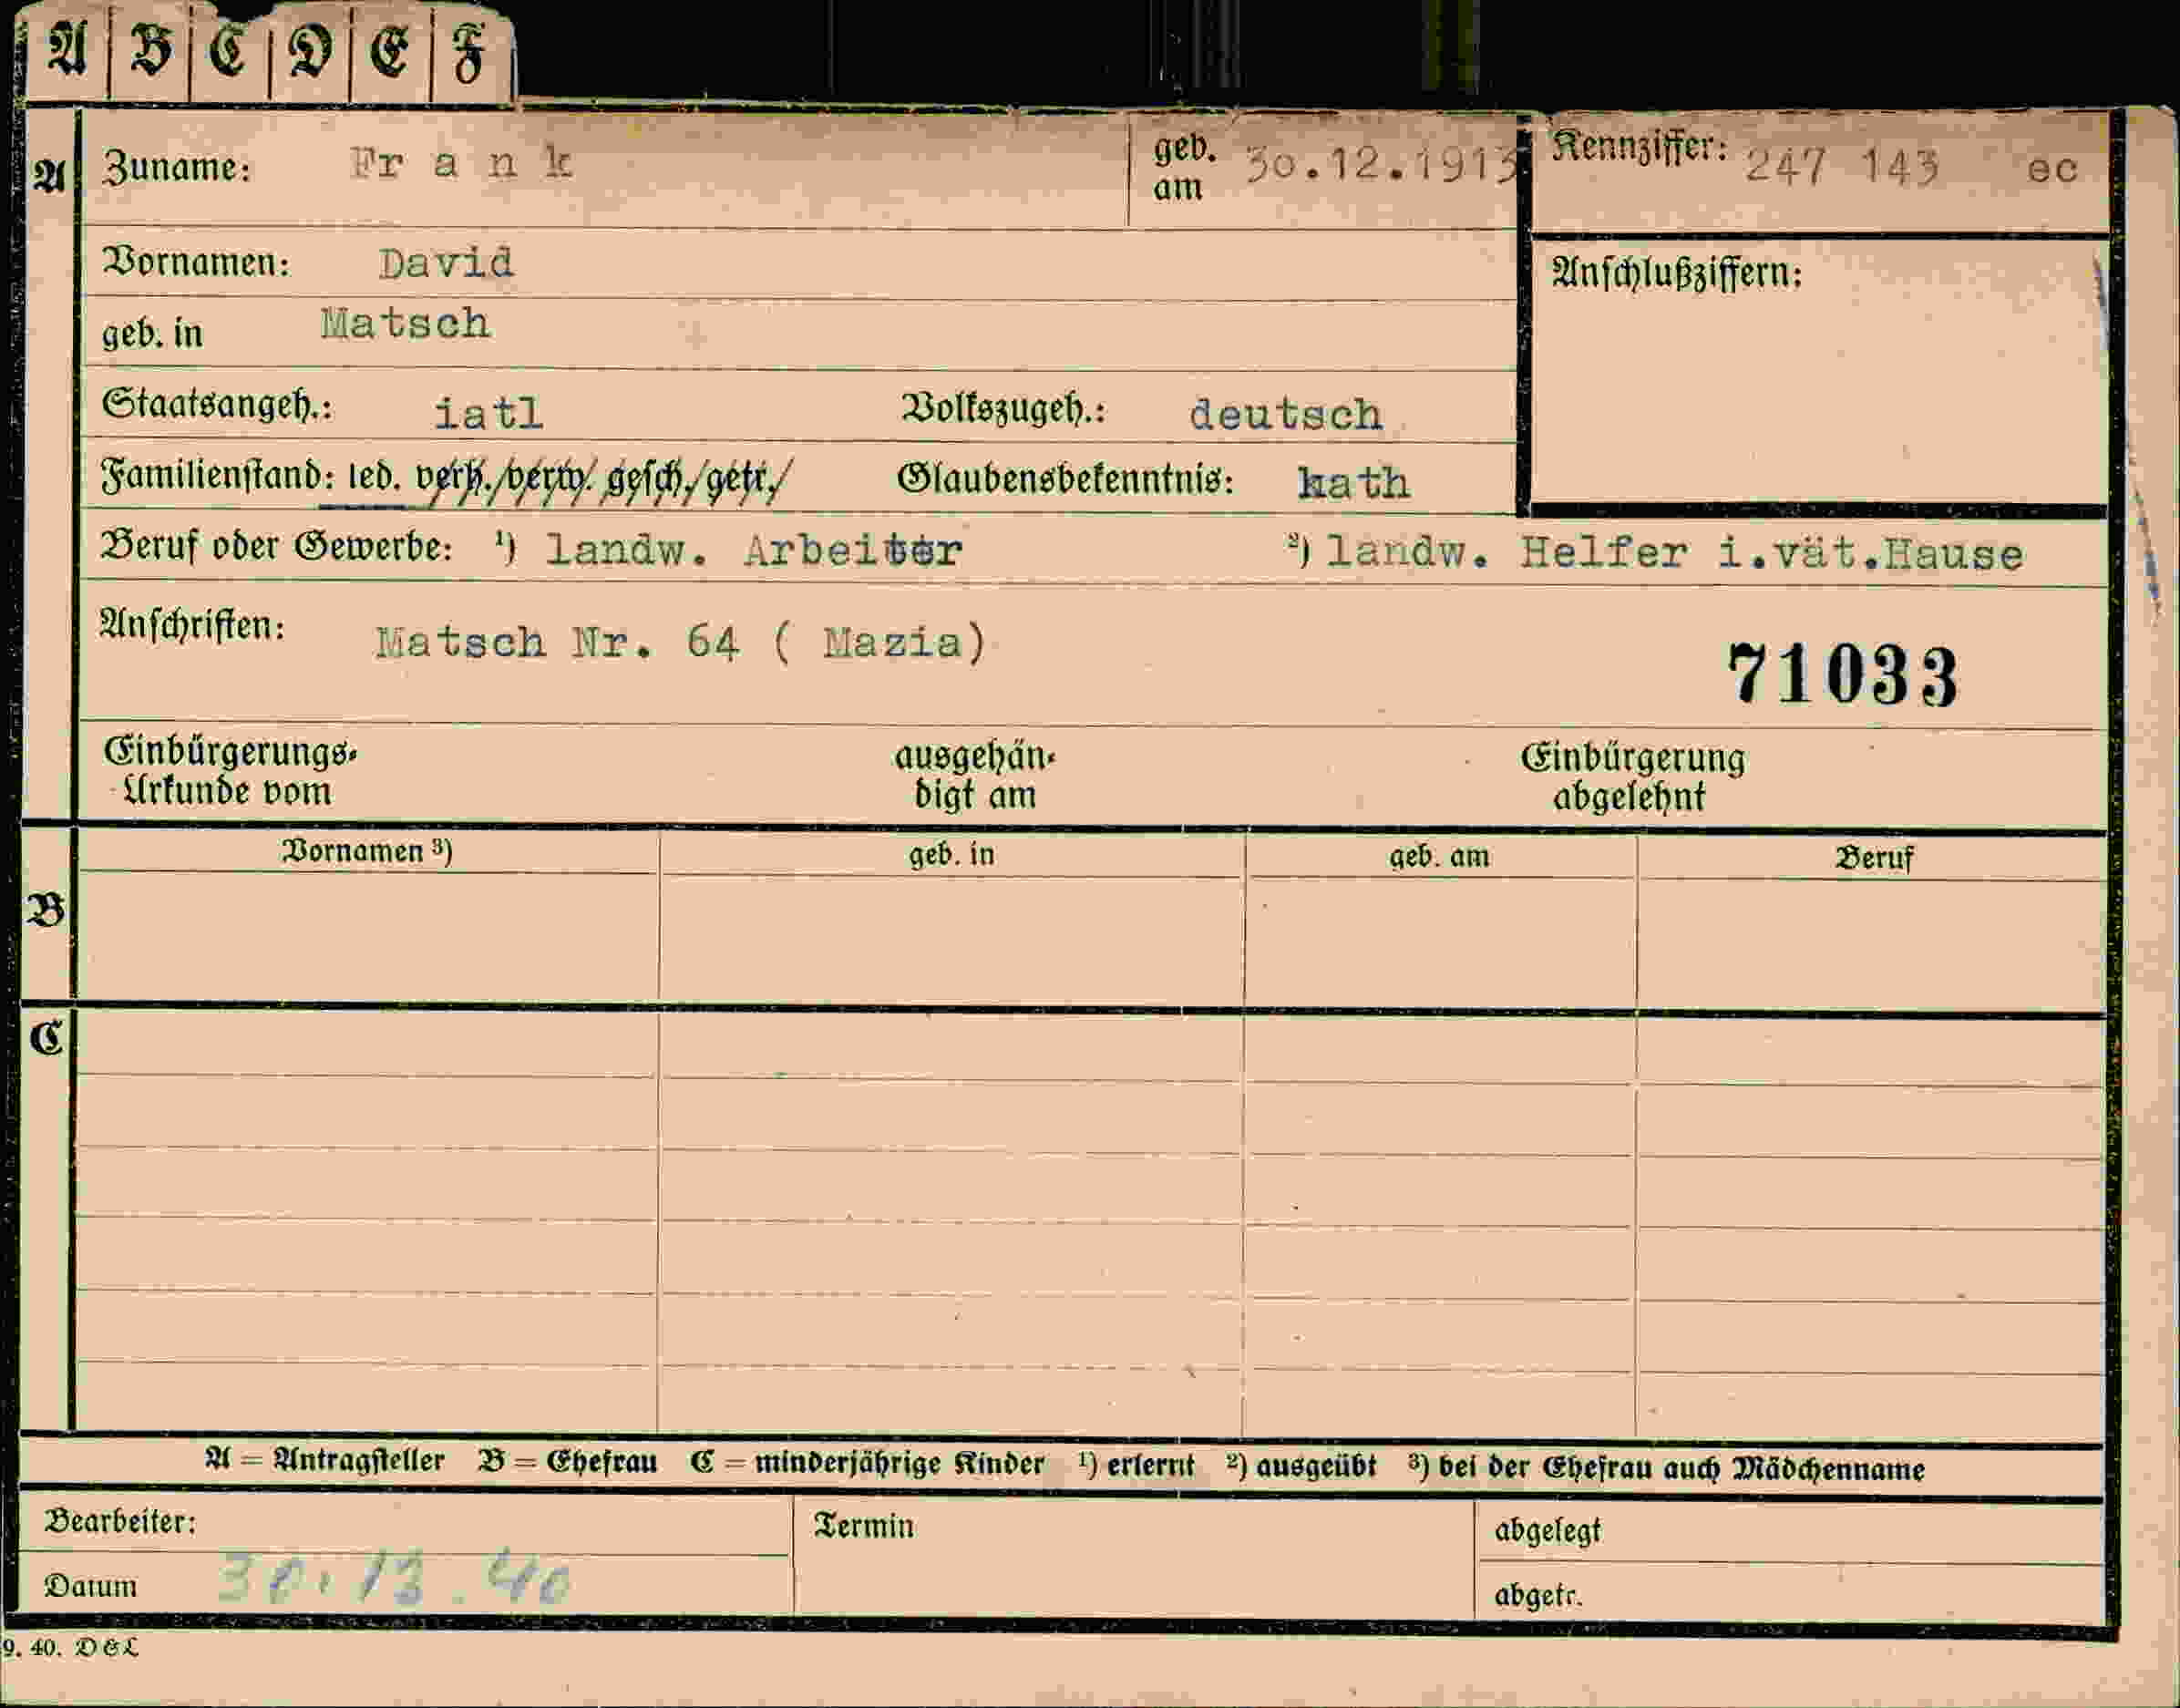 A B C D E F
A Zuname: Frank geb. am 30.12.1913 Kennziffer: 247 143 ec
Vornamen: David
Anschlußziffern:
geb. in Matsch
Staatsangeh.: iatl Volkszugeh.: deutsch
Familienstand: led. verh./verw. gesch./getr./ Glaubensbekenntnis: kath
Beruf oder Gewerbe: ¹) landw. Arbeiter ²) landw. Helfer i.vät.Hause
Anschriften: Matsch Nr. 64 ( Mazia)
71033
Einbürgerungs- ausgehän- Einbürgerung
Urkunde vom digt am abgelehnt
Vornamen ³) geb. in geb. am Beruf
B
C
A = Antragsteller B = Ehefrau C = minderjährige Kinder ¹) erlernt ²) ausgeübt ³) bei der Ehefrau auch Mädchenname
Bearbeiter: Termin abgelegt
Datum 30.13.40 abgetr.
9. 40. D&L